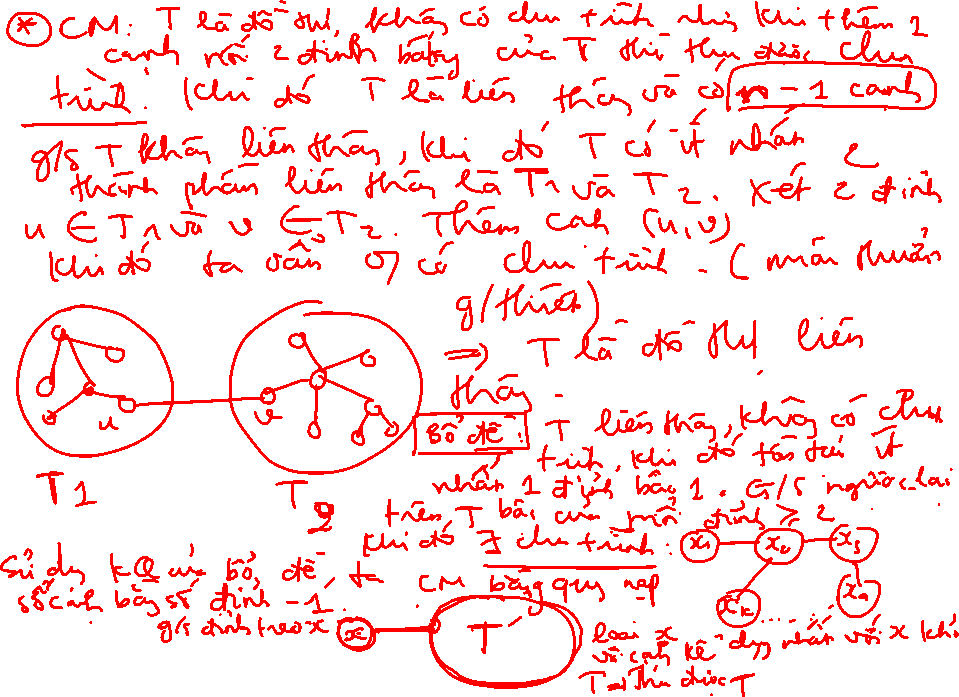 * CM: T là đồ thị, không có chu trình nhưng khi thêm 1
cạnh nối 2 đỉnh bất kỳ của T thì thu được chu
trình. Khi đó T là liên thông và có n - 1 cạnh
g/s T không liên thông, khi đó T có ít nhất 2
thành phần liên thông là T1 và T2. Xét 2 đỉnh
u ∈ T1 và v ∈ T2. Thêm cạnh (u,v)
khi đó ta vẫn có chu trình. (mâu thuẫn
g/thiết)
=> T là đồ thị liên
thông
u
v
T1
T2
Bổ đề: T liên thông, không có chu
trình, khi đó tồn tại ít
nhất 1 đỉnh bậc 1. G/s ngược lại
trên T bậc của mỗi đỉnh ≥ 2
khi đó ∃ chu trình:
x1 x2 x3
xk
Sử dụng KQ của bổ đề, ta CM bằng quy nạp
số cạnh bằng số đỉnh - 1.
g/s đỉnh treo x
x
T'
loại x
và cạnh kề duy nhất với x khỏi
T => thu được T